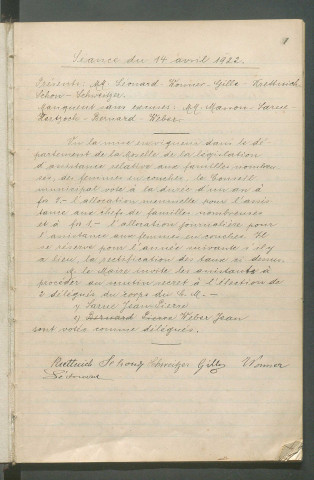 1
Séance du 14 avril 1922.
Présents: MM. Leonard - Wonner - Gillo - Rettnich
Schon - Schweitzer.
Manquent sans excuses: MM. Manon - Larue
Hertzog - Bernard - Weber.
En la mise en vigueur dans le dé-
partement de la Moselle de la législation
d'assistance relative aux familles nombreu-
ses, des femmes en couches, le Conseil
municipal vote à la durée d'un an à
fr 2,- l'allocation mensuelle pour l'assis
tance aux chefs de familles nombreuses
et à fr 1.- l'allocation journalière pour
l'assistance aux femmes en couches. Il
se réserve pour l'année suivante s'il y
a lieu, la rectification des taux ci-dessus.
M. le Maire invite les assistants à
procéder au scrutin secret à l'élection de
2 délégués du corps du C. M. -
1) Larue Jean Pierre
2) Bernard Weber Jean
sont votés comme délégués.
Rettnich Schon Schweitzer Gillo Wonner